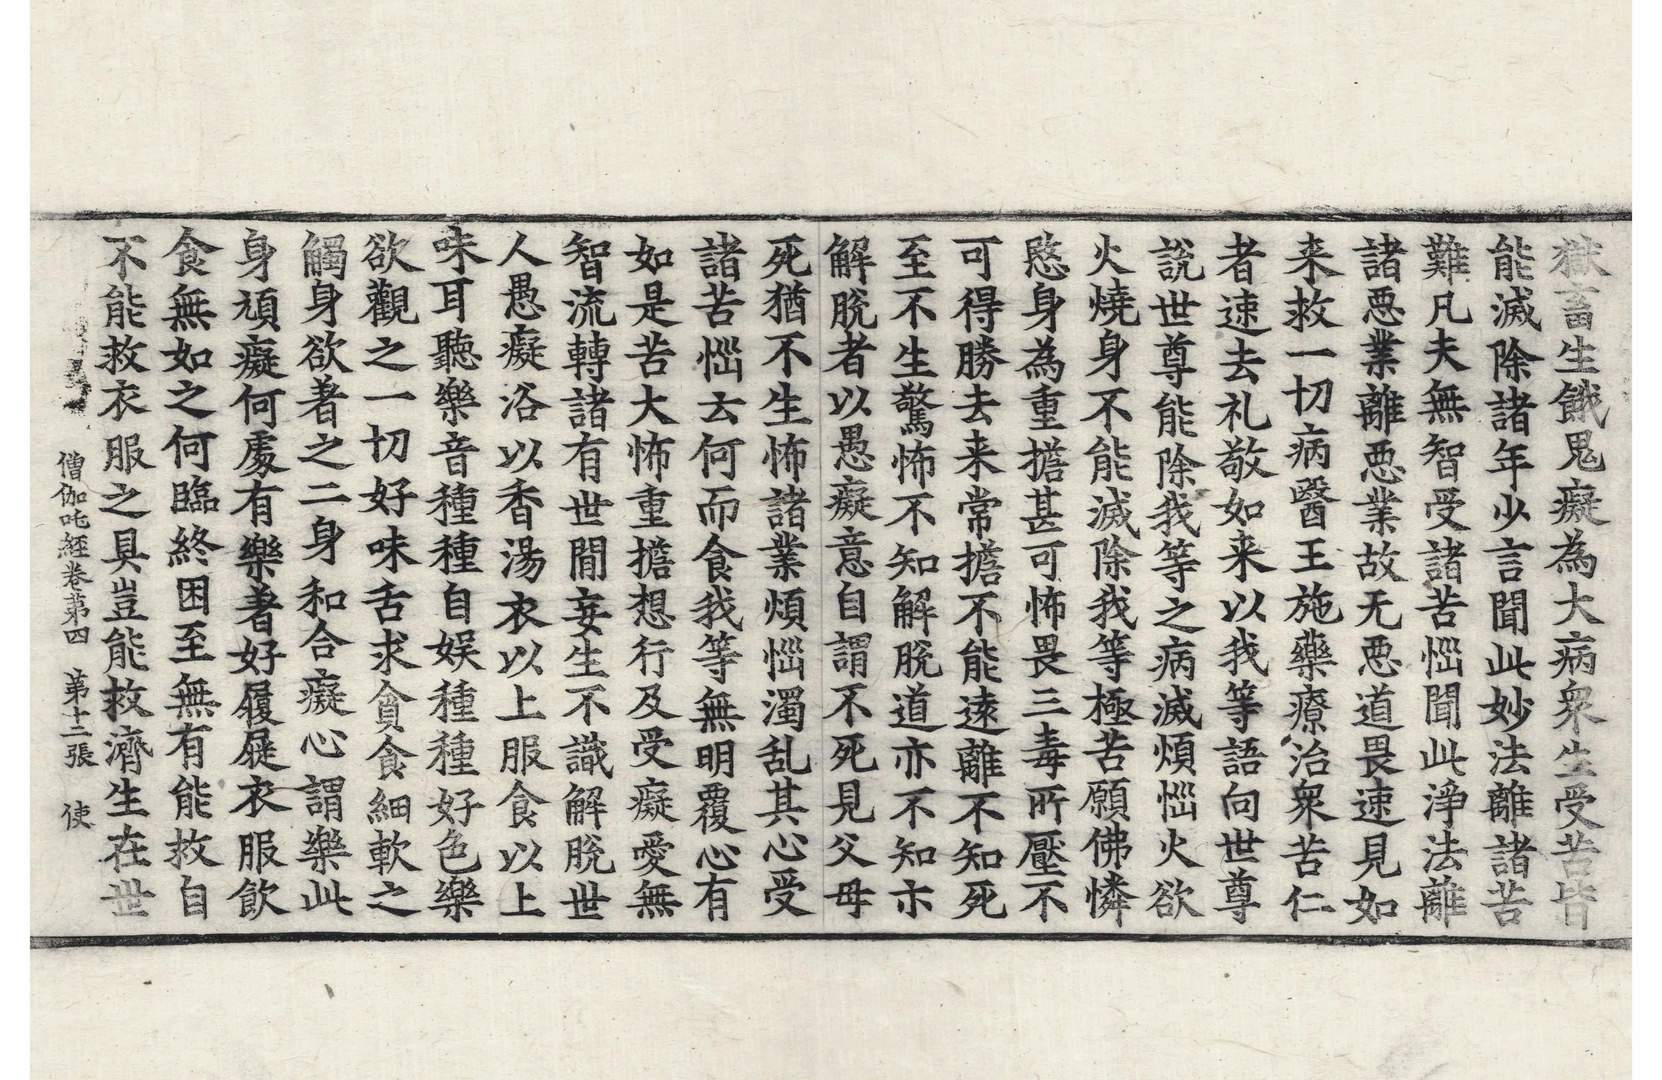 獄畜生餓鬼癡為大病衆生受苦皆
能滅除諸年少言聞此妙法離諸苦
難凡夫無智受諸苦惱聞此淨法離
諸惡業離惡業故无惡道畏速見如
来救一切病醫王施藥療治衆苦仁
者速去礼敬如来以我等語向世尊
說世尊能除我等之病滅煩惱火欲
火燒身不能滅除我等極苦願佛憐
愍身為重擔甚可怖畏三毒所壓不
可得勝去来常擔不能遠離不知死
至不生驚怖不知解脫道亦不知示
解脫者以愚癡意自謂不死見父母
死猶不生怖諸業煩惱濁乱其心受
諸苦惱云何而食我等無明覆心有
如是苦大怖重擔想行及受癡愛無
智流轉諸有世間妄生不識解脫世
人愚癡浴以香湯衣以上服食以上
味耳聽樂音種種自娱種種好色樂
欲觀之一切好味舌求貪食細軟之
觸身欲著之二身和合癡心謂樂此
身頑癡何處有樂著好履屣衣服飲
食無如之何臨終困至無有能救自
不能救衣服之具豈能救濟生在世
僧伽吒經卷第四　第十二張　使